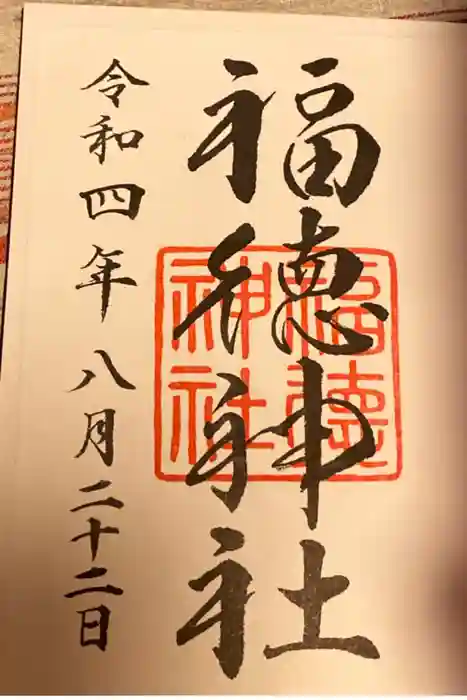 福徳神社
福徳神社
令和四年八月二十二日